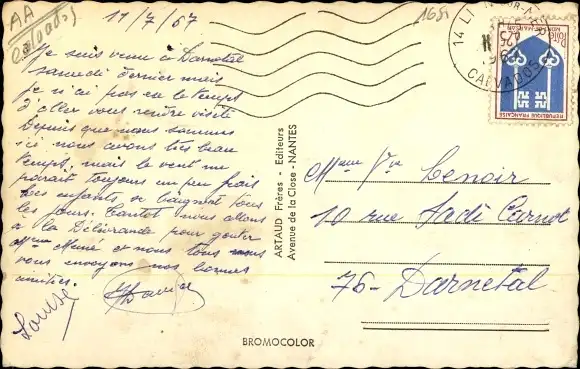 AA
Calvados
11/7/67
Je suis venue à Darnétal
samedi dernier mais
je n'ai pas eu le temps
d'aller vous rendre visite
Depuis que nous sommes
ici nous avons très beau
temps, mais le vent me
paraît toujours un peu frais
Les enfants se baignent tous
les jours. Tantôt nous allons
à la Délivrande pour goûter
Mme et nous tous
vous envoyons nos bonnes
amitiés.
Louise
ARTAUD Frères - Editeurs
Avenue de la Close - NANTES
BROMOCOLOR
14 L
CALVADOS
REPUBLIQUE FRANÇAISE
0,25
POSTES
Mme Vve Lenoir
10 rue Sadi Carnot
76 - Darnétal